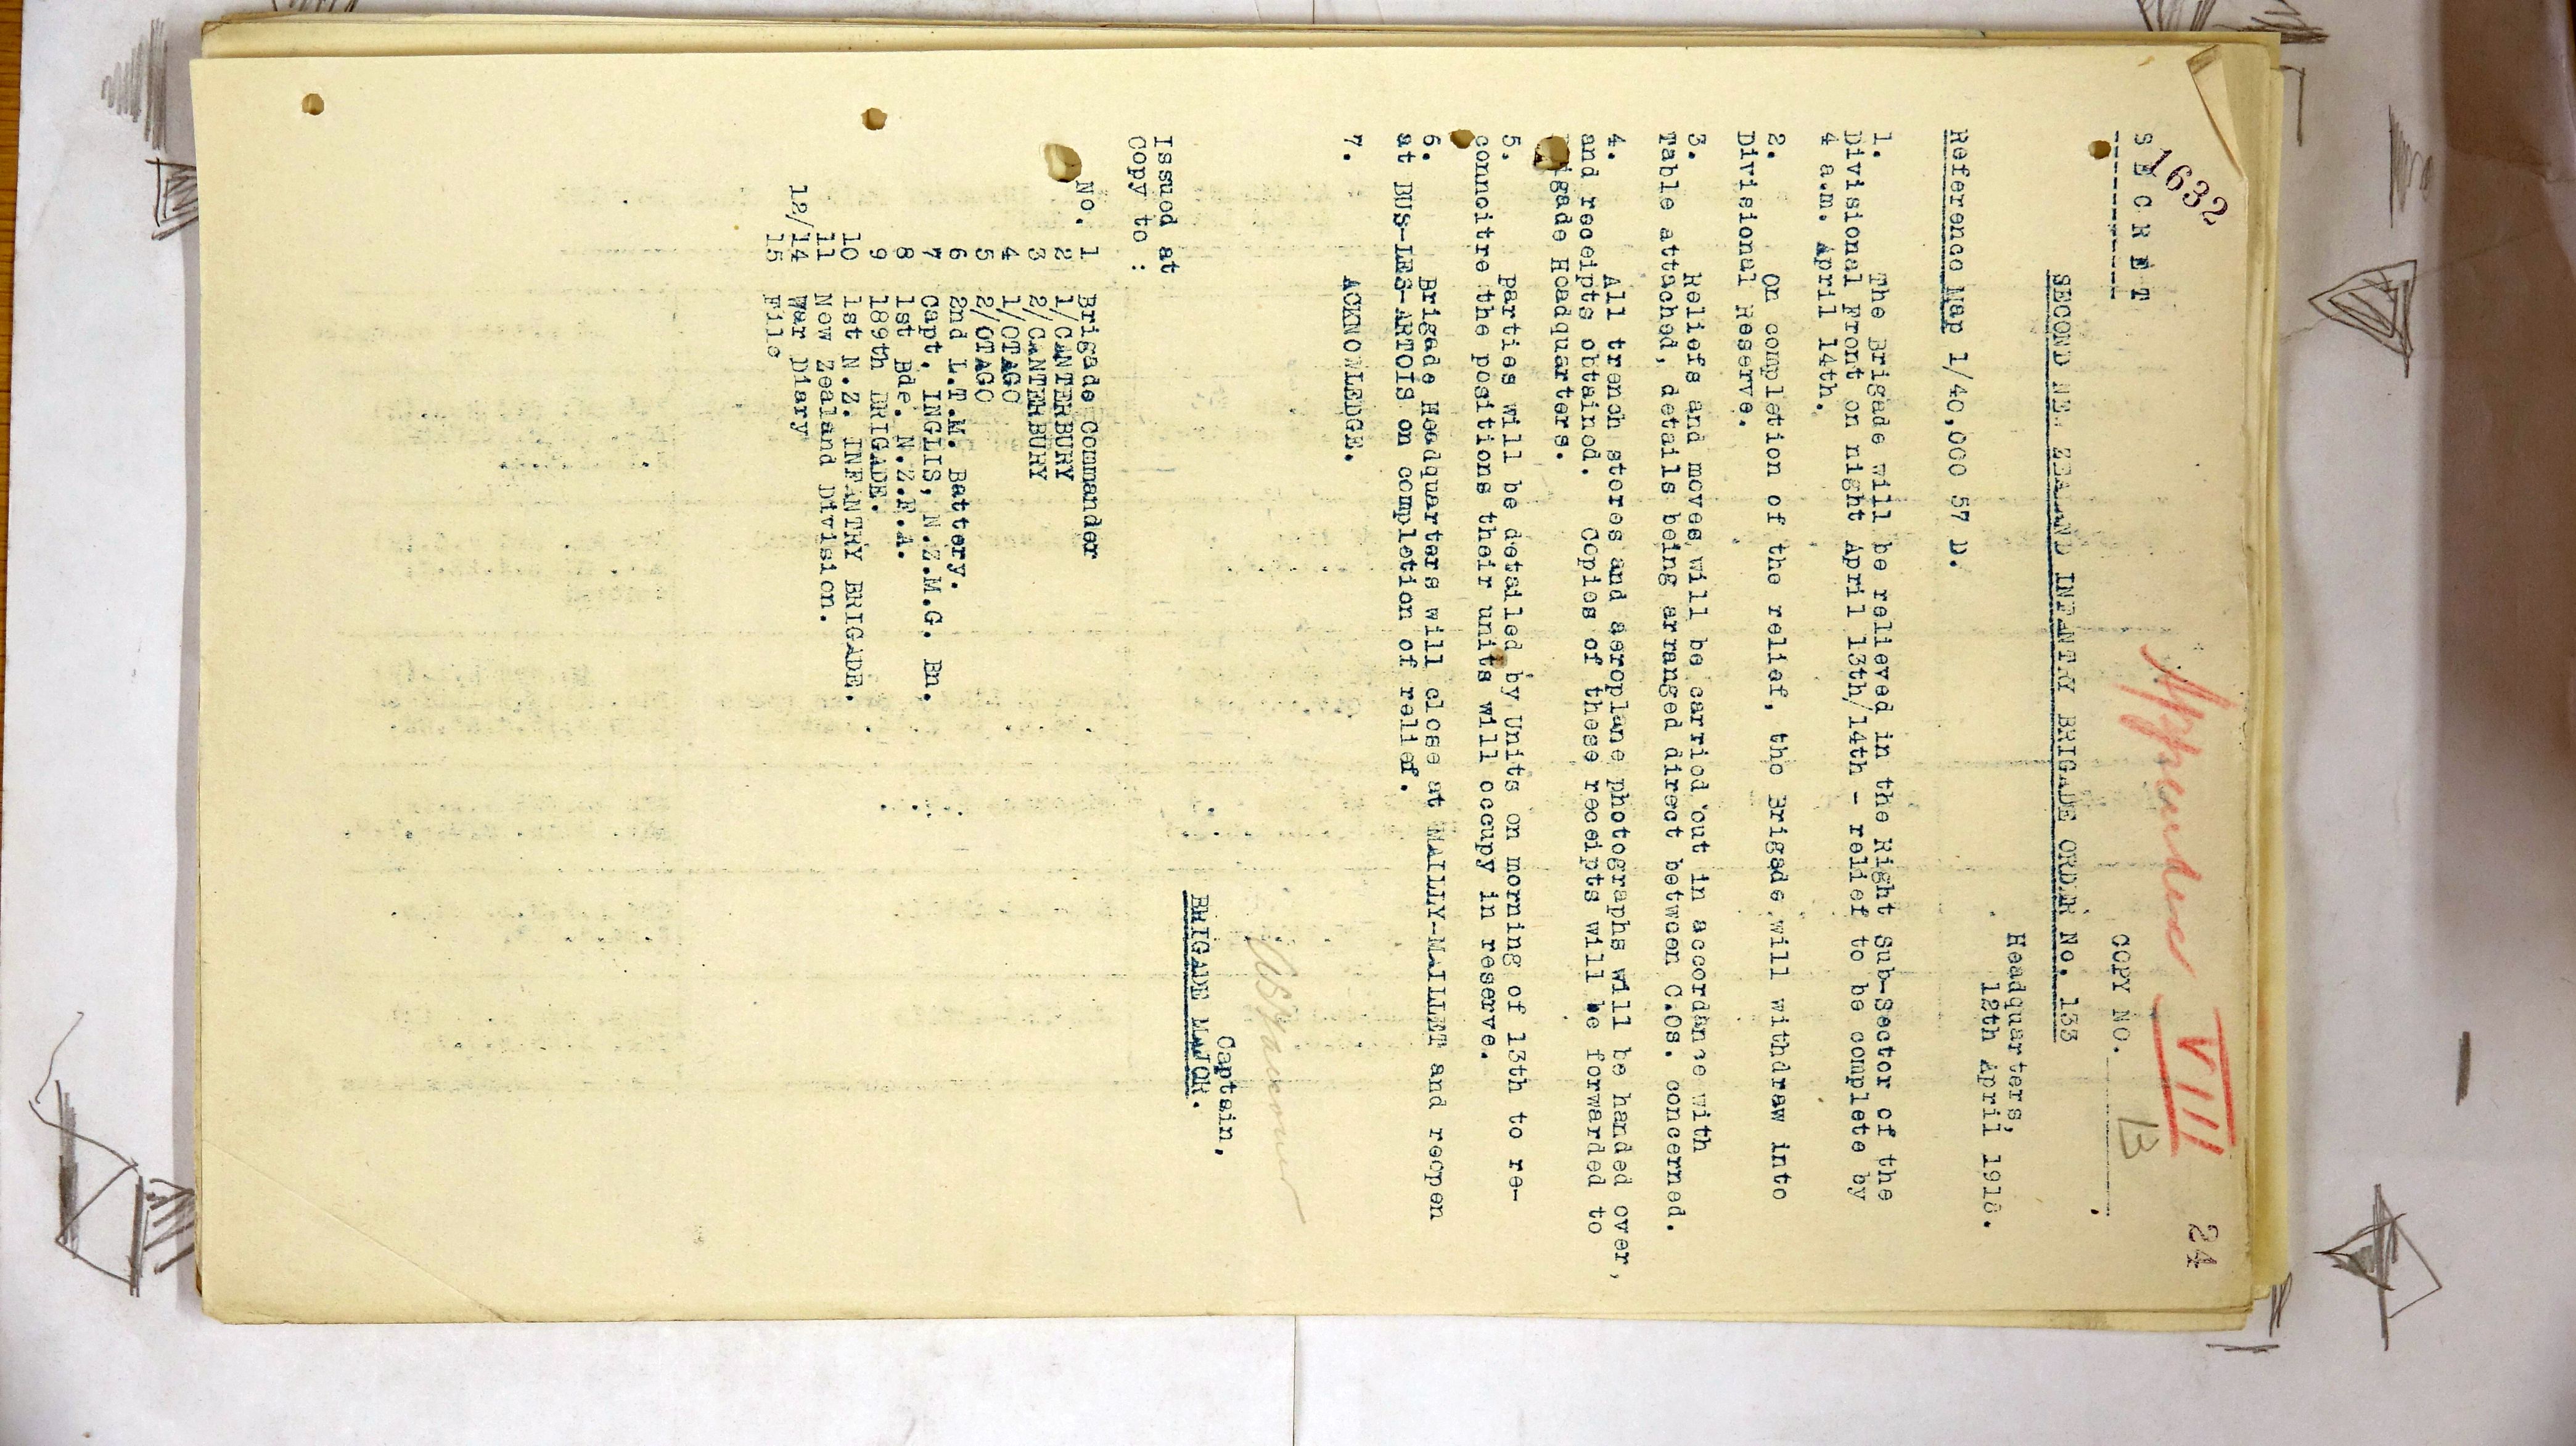 1632
Appendix VIII
24
S E C R E T
COPY NO. 13
SECOND NEW ZEALAND INFANTRY BRIGADE ORDER No. 133
Headquarters,
12th April 1918.
Reference Map 1/40,000 57 D.
1. The Brigade will be relieved in the Right Sub-Sector of the
Divisional Front on night April 13th/14th - relief to be complete by
4 a.m. April 14th.
2. On completion of the relief, the Brigade will withdraw into
Divisional Reserve.
3. Reliefs and moves will be carried out in accordance with
Table attached, details being arranged direct between C.Os. concerned.
4. All trench stores and aeroplane photographs will be handed over,
and receipts obtained. Copies of these receipts will be forwarded to
Brigade Headquarters.
5. Parties will be detailed by Units on morning of 13th to re-
connoitre the positions their units will occupy in reserve.
6. Brigade Headquarters will close at MAILLY-MAILLET and reopen
at BUS-LES-ARTOIS on completion of relief.
7. ACKNOWLEDGE.
Captain,
BRIGADE MAJOR.
Issued at
Copy to :
No. 1 Brigade Commander
2 1/CANTERBURY
3 2/CANTERBURY
4 1/OTAGO
5 2/OTAGO
6 2nd L.T.M. Battery.
7 Capt. INGLIS, N.Z.M.G. Bn.
8 1st Bde. N.Z.F.A.
9 189th BRIGADE.
10 1st N.Z. INFANTRY BRIGADE.
11 New Zealand Division.
12/14 War Diary
15 File